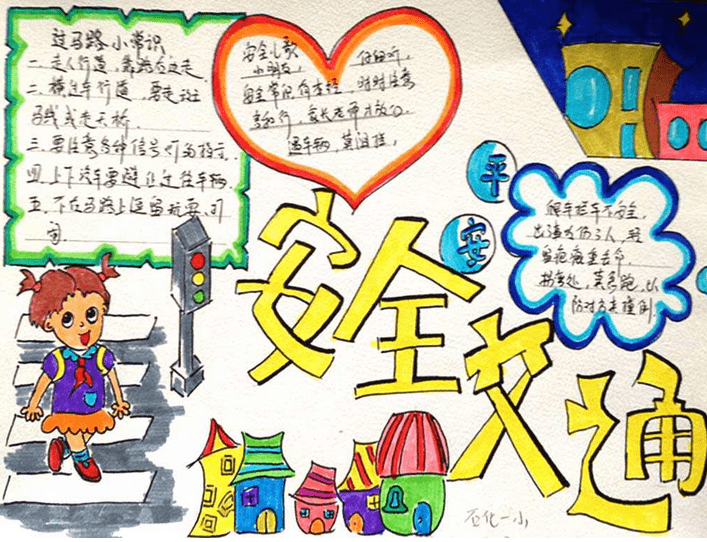 过马路小常识
一.走人行道,靠路右边走.
二.横过车行道,要走斑
马线或走天桥
三.要注意各种信号灯的指示
四.上下汽车要避让过往车辆.
五.不在马路上逗留玩耍、打
闹.
安全儿歌
小朋友,仔细听,
安全常识有本经,时时注意
家长老师才放心.
遇车辆,莫
平
安
爬车拦车不安全,
出
丧命.
拐弯处,莫急跑,以
防对方来撞倒.
安全交通
石化一小